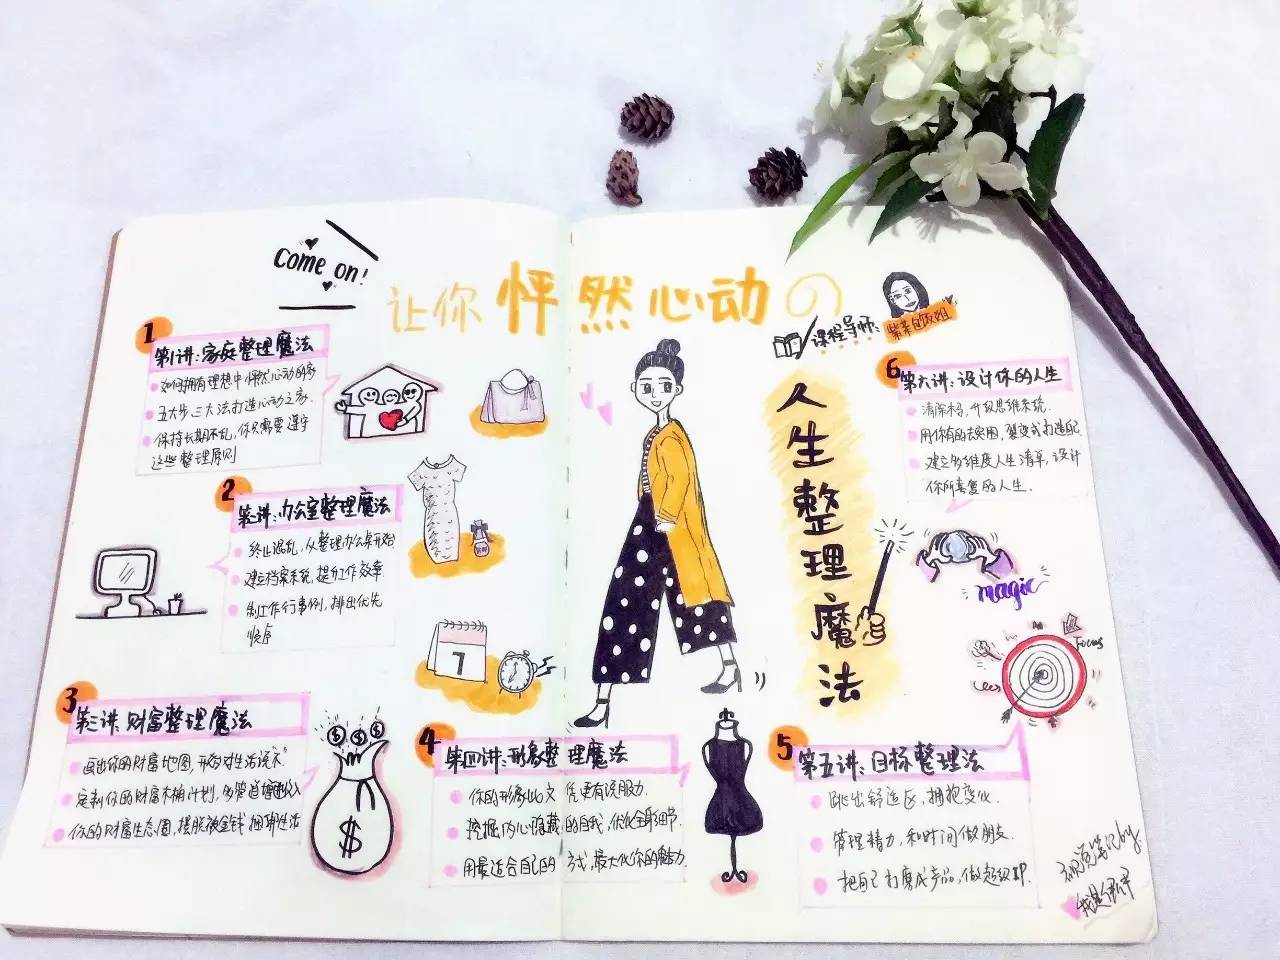 Come on!
让你怦然心动の
课程导师:
紫菜包饭姐
人生整理魔法
1
第1讲:家庭整理魔法
如何拥有理想中怦然心动的家
五大步三大法打造心动之家
保持长期不乱,你只需要遵守
这些整理原则
2
第二讲:办公室整理魔法
终止混乱,从整理办公桌开始
建立档案系统,提升工作效率
制工作行事例,排出优先
顺序
3
第三讲:财富整理魔法
画出你的财富地图,开始对生活说"不"
定制你的财富不
你的财富生态圈,摆脱被金钱捆绑生活
7
$
4
第四讲:形象整理魔法
你的形象比文凭更有说服力
挖掘内心隐藏的自我,优化全身细节
用最适合自己的方式,最大化你的魅力
5
第五讲:目标整理魔法
跳出舒适区,拥抱变化
管理精力,和时间做朋友
把自己打磨成产品,做超级IP
6
第六讲:设计你的人生
清除木马,升级思维系统
用你有的去突围,裂变式打造
建立多维度人生清单,设计
你所喜爱的人生.
magic
Focus
视觉笔记by